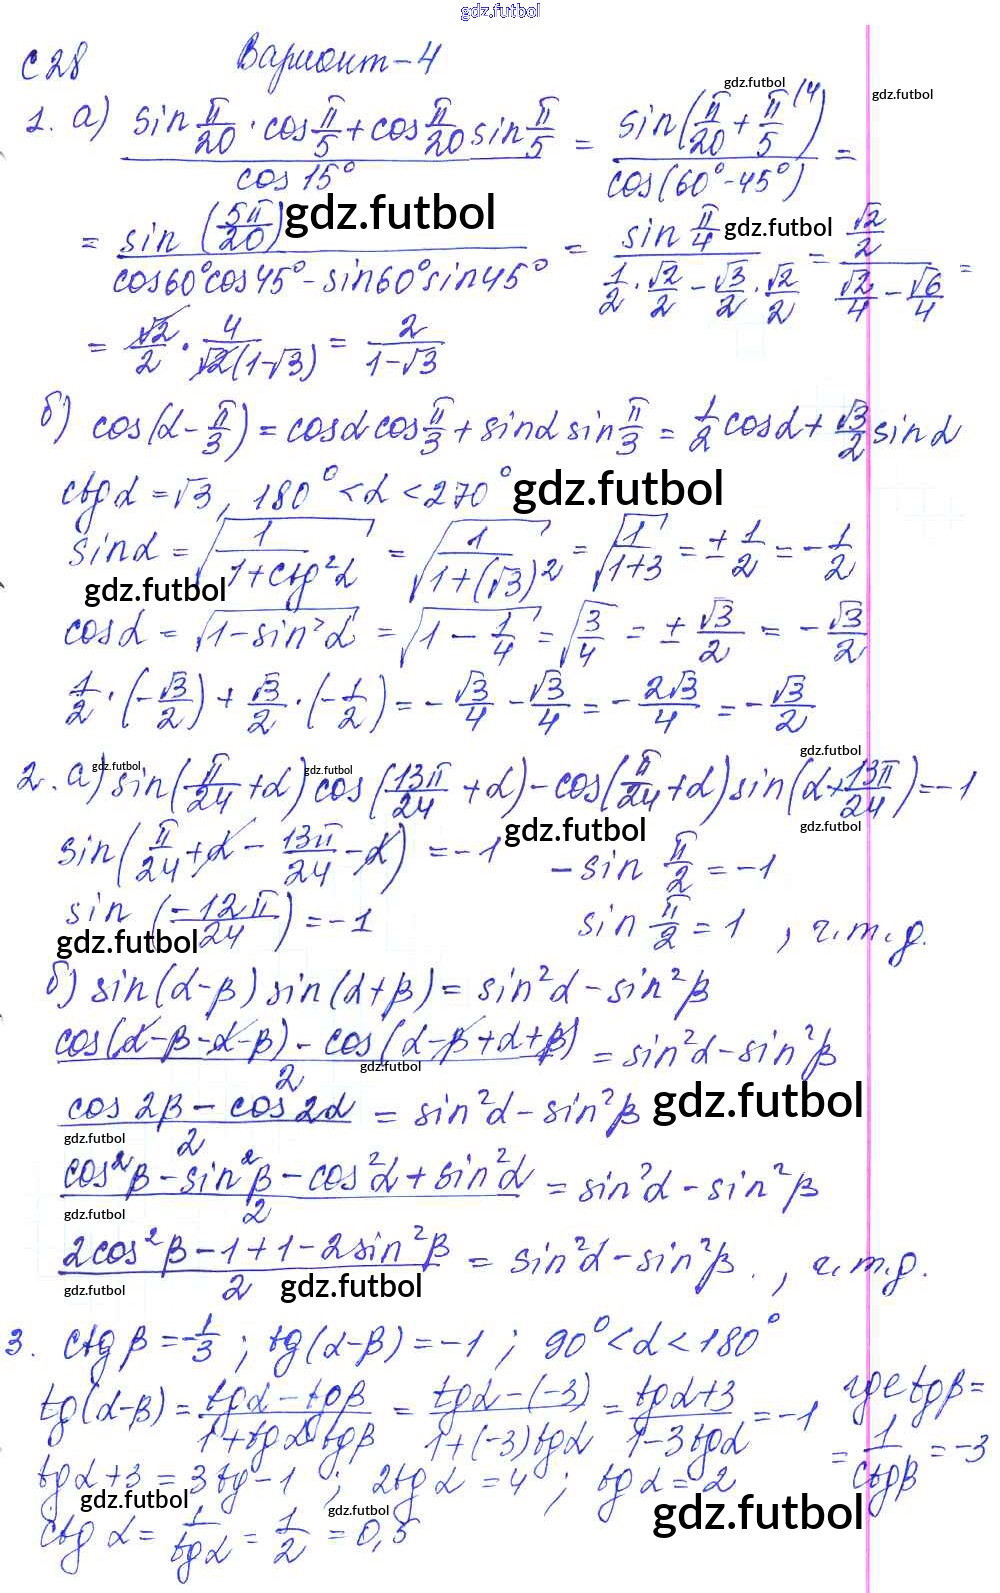 gdz.futbol
С 28 Вариант-4
gdz.futbol gdz.futbol
1. а) (sin π/20 · cos π/5 + cos π/20 sin π/5)/(cos 15°) = sin(π/20 + π/5^(4)/(cos(60°-45°) =
gdz.futbol gdz.futbol
= sin (5π/20)/(cos60°cos45° - sin60°sin45°) = (sin π/4)/(1/2 · √2/2 - √3/2 · √2/2) = (√2/2)/(√2/4 - √6/4) =
= √2/2 · 4/(√2(1-√3)) = 2/(1-√3)
б) cos(α - π/3) = cosα cos π/3 + sinα sin π/3 = 1/2 cosα + √3/2 sinα
ctgα = √3, 180° < α < 270° gdz.futbol
sinα = √(1/(1+ctg²α)) = √(1/(1+(√3)²)) = √(1/(1+3)) = ± 1/2 = - 1/2
gdz.futbol
cosα = √(1-sin²α) = √(1 - 1/4) = √(3/4) = ± √3/2 = - √3/2
1/2 · (- √3/2) + √3/2 · (- 1/2) = - √3/4 - √3/4 = - 2√3/4 = - √3/2
gdz.futbol gdz.futbol gdz.futbol
2. а) sin(π/24 + α) cos(13π/24 + α) - cos(π/24 + α) sin(α + 13π/24) = -1
gdz.futbol gdz.futbol
sin(π/24 + α - 13π/24 - α) = -1 - sin π/2 = -1
sin (-12π/24) = -1 sin π/2 = 1, ч.т.д.
gdz.futbol
б) sin(α-β) sin(α+β) = sin²α - sin²β
(cos(α-β-α-β) - cos(α-β+α+β))/2 = sin²α - sin²β
gdz.futbol
(cos 2β - cos 2α)/2 = sin²α - sin²β gdz.futbol
gdz.futbol
(cos²β - sin²β - cos²α + sin²α)/2 = sin²α - sin²β
gdz.futbol
(2cos²β - 1 + 1 - 2sin²β)/2 = sin²α - sin²β., ч.т.д.
gdz.futbol gdz.futbol
3. ctg β = -1/3; tg(α-β) = -1; 90° < α < 180°
tg(α-β) = (tgα - tgβ)/(1+tgα tgβ) = (tgα - (-3))/(1+(-3)tgα) = (tgα+3)/(1-3tgα) = -1 где tgβ =
= 1/ctgβ = -3
tgα+3 = 3tg-1; 2tgα = 4; tgα = 2
gdz.futbol gdz.futbol gdz.futbol
ctg α = 1/tgα = 1/2 = 0,5